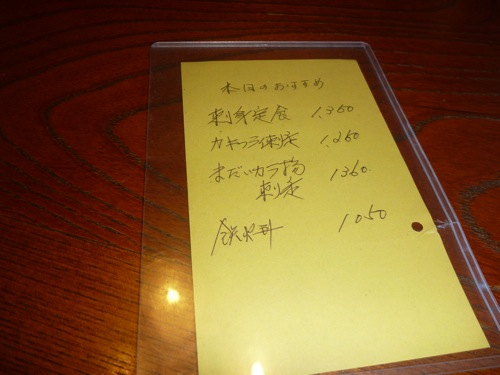 本日のおすすめ
刺身定食 1,350
カキフライ刺定 1,250
まだいカラ揚 1360.
刺定
1050